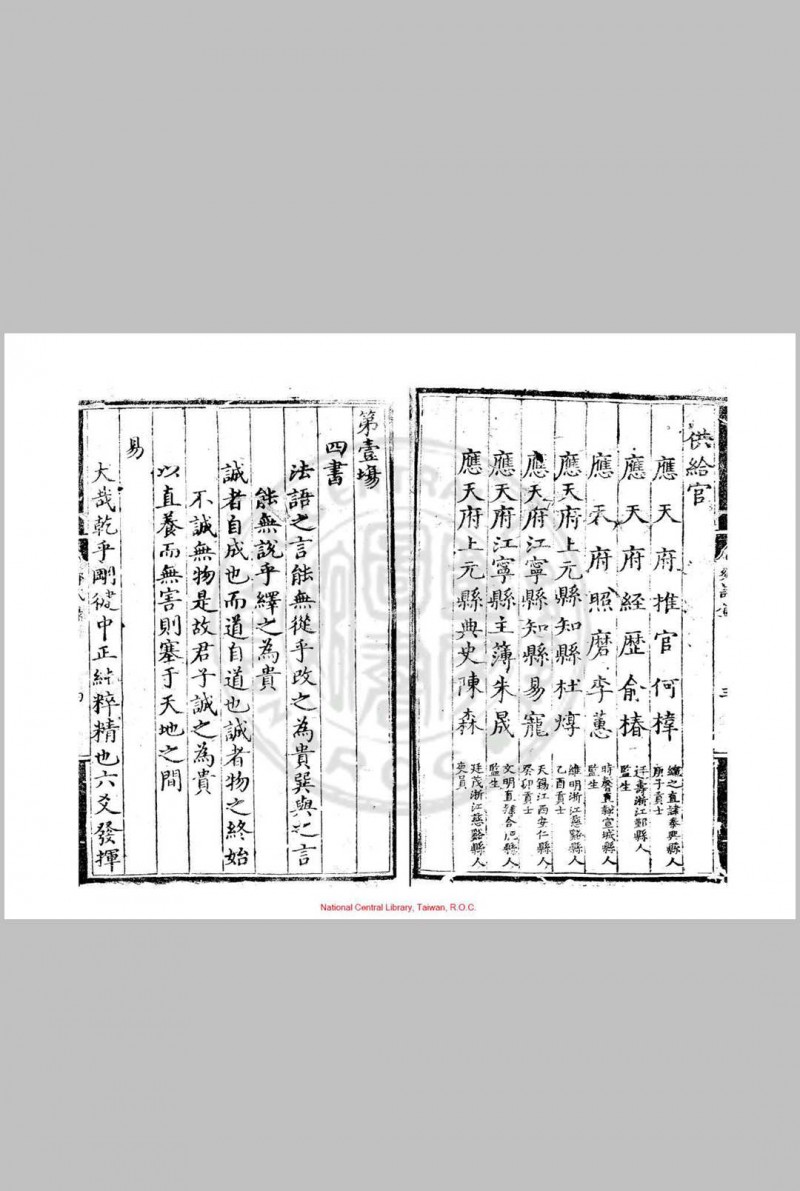 供給官
應天府推官何樟 纖之直隸泰興縣人
庚子貢士
應天府經歷俞椿 廷壽浙江鄞縣人
監生
應天府照磨李蕙 時馨直隸宣城縣人
監生
應天府上元縣知縣杜焞 維明浙江慈谿縣人
乙酉貢士
應天府江寧縣知縣易寵 天錫江西安仁縣人
癸卯貢士
應天府江寧縣主簿朱晟 文明直隸合肥縣人
監生
應天府上元縣典史陳森 廷茂浙江慈谿縣人
吏員
第壹場
四書
法語之言能無從乎改之為貴巽與之言
能無說乎繹之為貴
誠者自成也而道自道也誠者物之終始
不誠無物是故君子誠之為貴
以直養而無害則塞于天地之間
易
大哉乾乎剛健中正純粹精也六爻發揮
National Central Library, Taiwan, R.O.C.